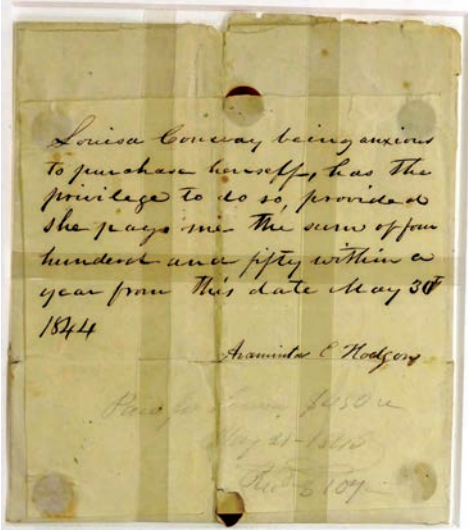 Louisa Conway being anxious
to purchase herself, has the
privilege to do so, provided
she pays me the sum of four
hundred and fifty within a
year from this date May 30
1844
Araminta E Hodgson
$450
May 1845